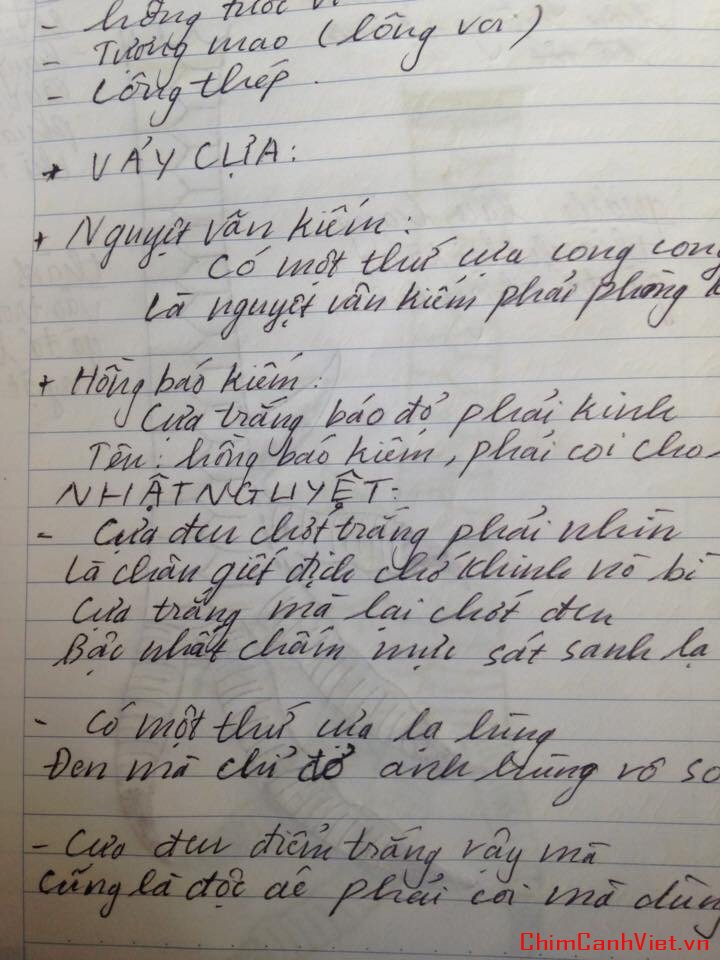 - Tượng mao (lông voi)
- Lông thép.
* VẢY CỰA:
+ Nguyệt vân kiếm:
Có một thứ cựa cong cong
Là nguyệt vân kiếm phải phòng
+ Hồng báo kiếm:
Cựa trắng báo đỏ phải kinh
Tên: hồng báo kiếm, phải coi cho
NHẬT NGUYỆT:
- Cựa đen chót trắng phải nhìn
Là chân giết địch chớ khinh nó bì
Cựa trắng mà lại chót đen
Bậc nhất chấm mực sát sanh lạ
- Có một thứ cựa lạ lùng
Đen mà chỉ đỏ anh hùng vô so
- Cựa đen điểm trắng vậy mà
Cũng là độc dê phải coi mà dùng
ChimCanhViet.vn